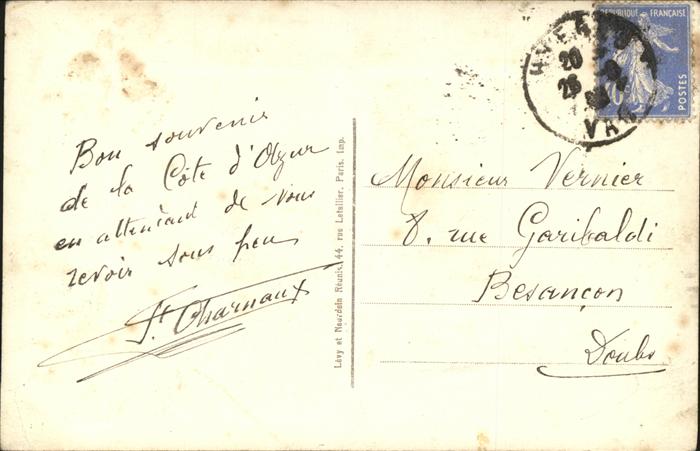 Bon souvenir
de la Côte d'Azur
en attendant de vous
revoir sous peu
Charnaux
Lévy et Neurdein Réunis, 44, rue Letellier, Paris. Imp.
REPUBLIQUE FRANÇAISE
POSTES
20
VAR
Monsieur Vernier
8. rue Garibaldi
Besançon
Doubs